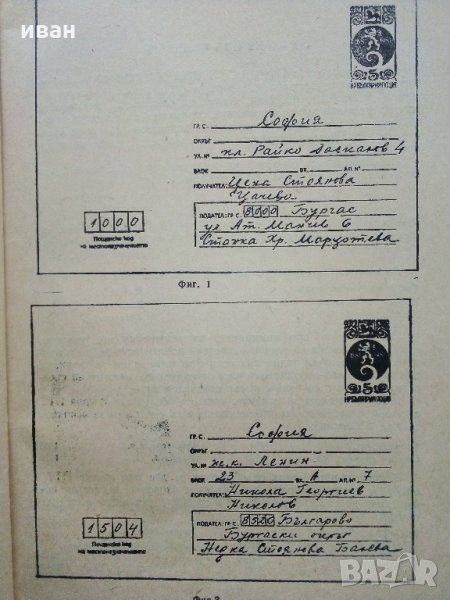 иван
5
НР БЪЛГАРИЯ ПОЩА
ГР. С. София
ОКРЪГ
УЛ. № пл. Райко Даскалов 4
БЛОК ВХ. АП. №
ПОЛУЧАТЕЛ: Цена Стоянова
Цачева
ПОДАТЕЛ: ГР. С. 8000 Бургас
ул. Ат. Манчев 6
Станка Хр.
1000
Пощенски код
на местоназначението
Фиг. 1
5
НР БЪЛГАРИЯ ПОЩА
ГР. С. София
ОКРЪГ
УЛ. № ж.к. Ленин
БЛОК 23 ВХ. А АП. № 7
ПОЛУЧАТЕЛ: Никола Георгиев
Николов
ПОДАТЕЛ: ГР. С. Българово
Бургаски окръг
Недка Стоянова
1504
Пощенски код
на местоназначението
Фиг. 2
BAZAR